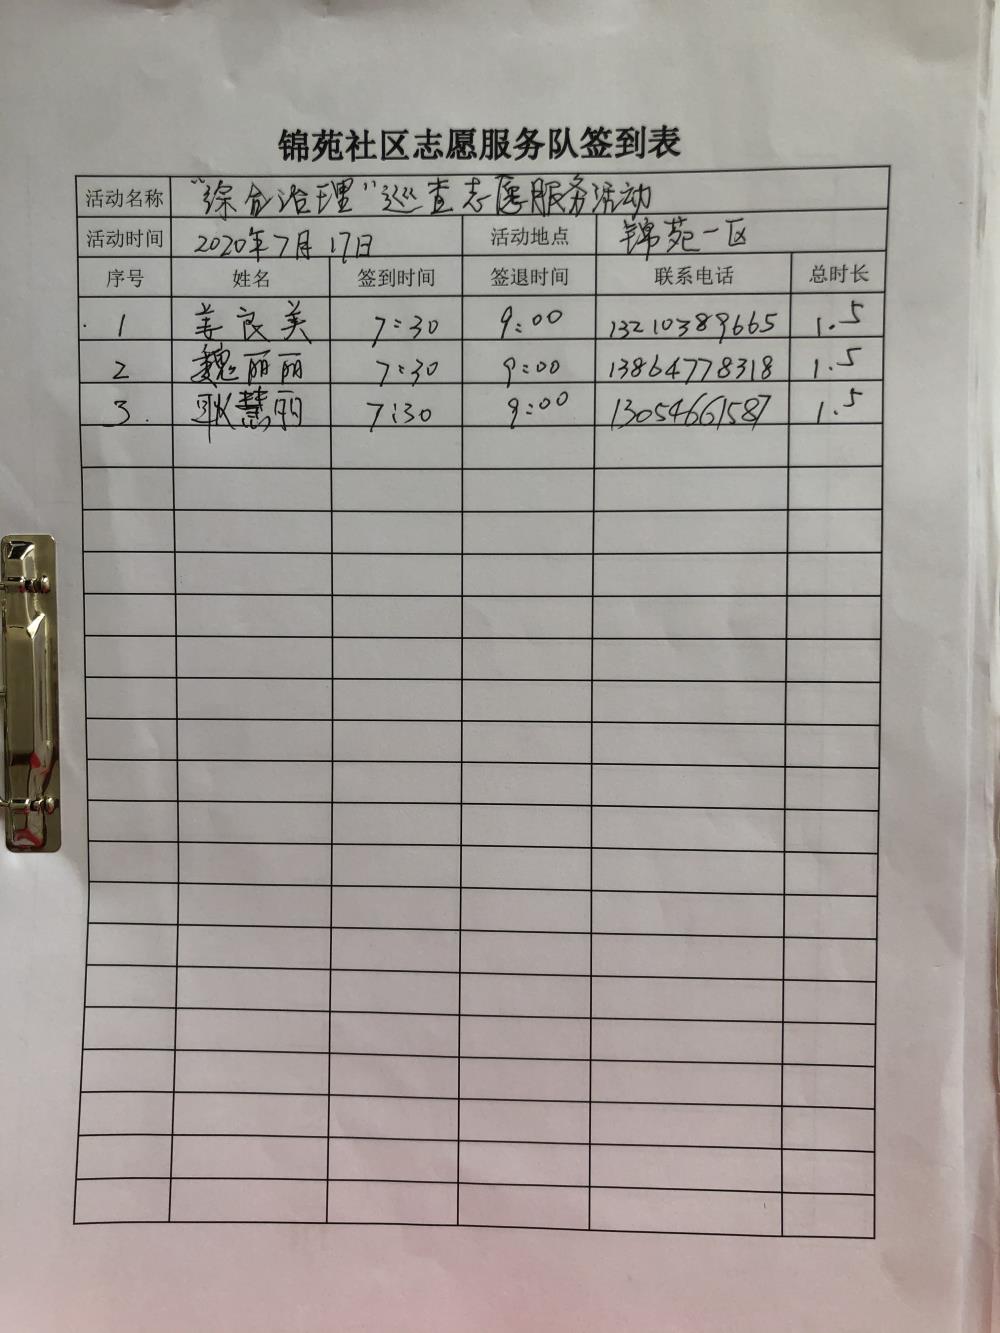 锦苑社区志愿服务队签到表
活动名称 "综合治理"巡查志愿服务活动
活动时间 2020年7月17日 活动地点 锦苑一区
序号 姓名 签到时间 签退时间 联系电话 总时长
1 姜良美 7:30 9:00 13210389665 1.5
2 魏丽丽 7:30 9:00 13864778318 1.5
3. 耿慧丽 7:30 9:00 13054661587 1.5